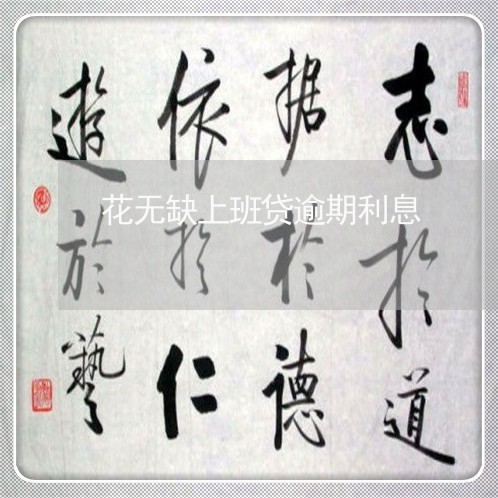 志扵道
据扵德
依扵仁
遊於藝
花无缺上班贷逾期利息